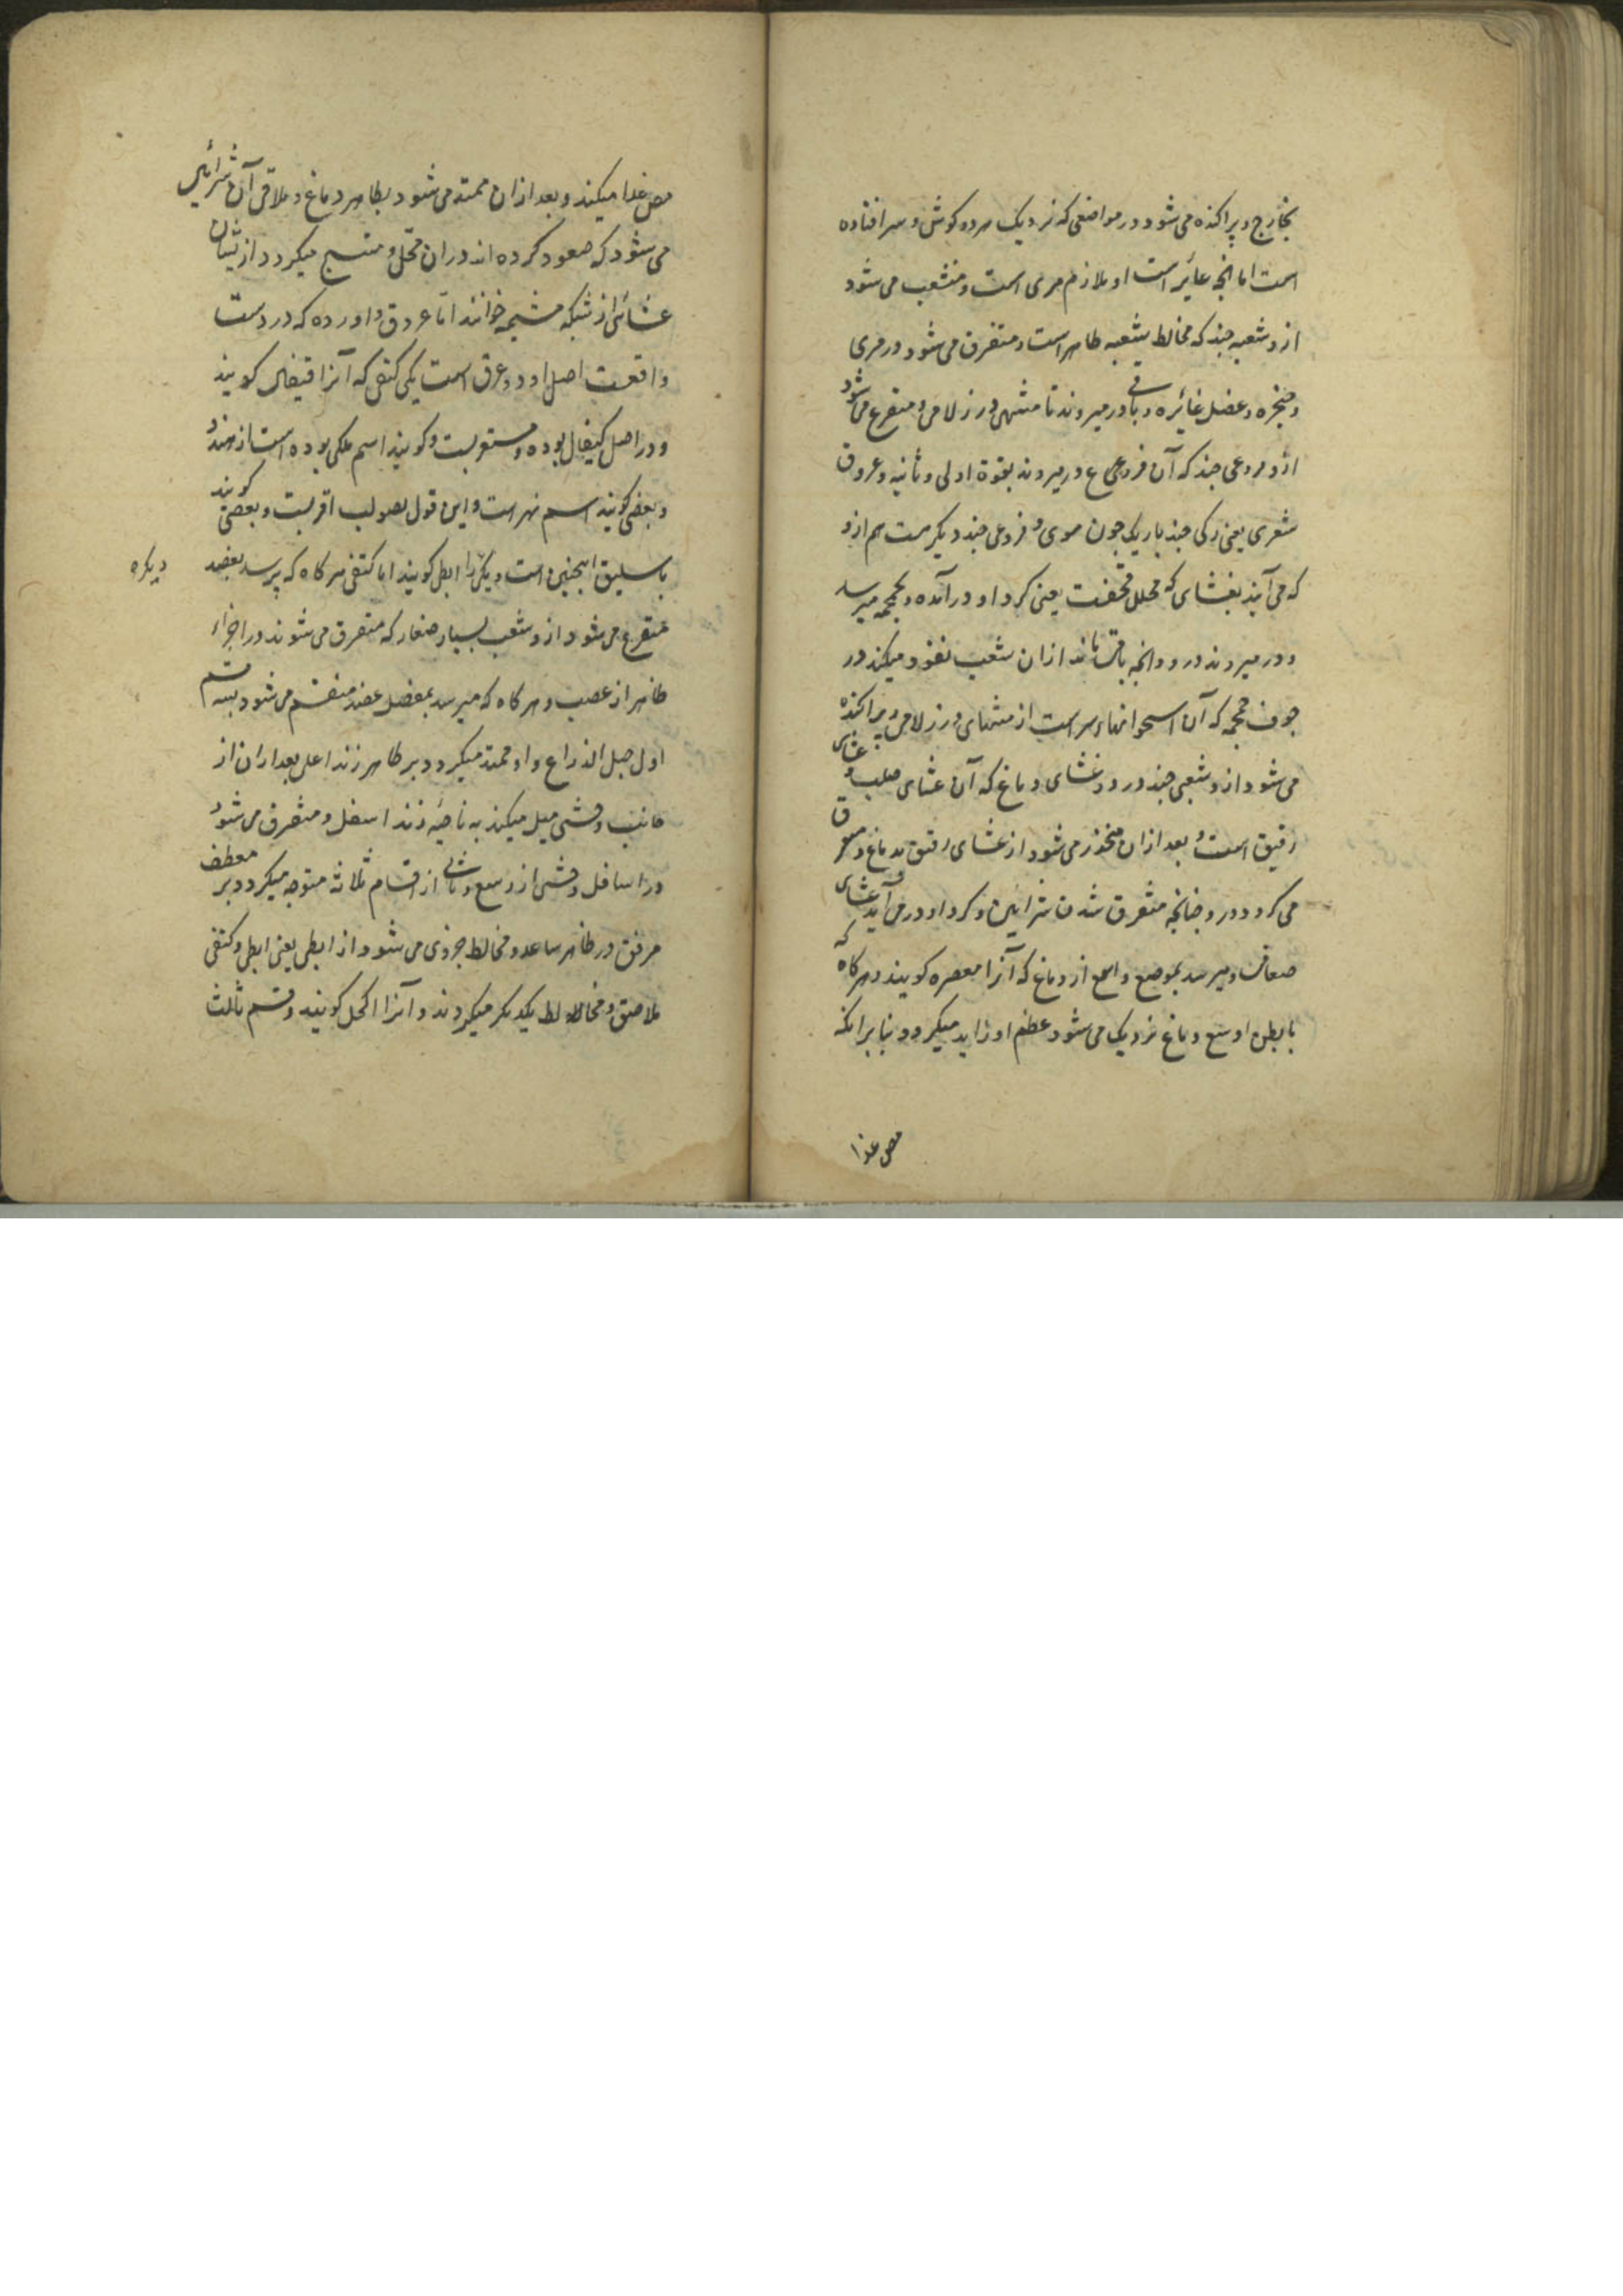 بخارج و پراکنده می‌شود در مواضعی که نزدیک سر و دو کوش و سر افتاده
است اما انچه غایر است او ملازم مری است و منشعب می‌شود
ازو شعبه جند که مخالط بشعبه ظاهر است و متفرق می‌شود در مری
و حنجره و عضل غائره و باقی در میروند تا منتهی درز لامی و متفرع می‌شود
ازو فروعی جند که آن فروع در میروند بفقرة اولی و ثانیه و عروق
شعری یعنی رکی جند باریک جون موی و فروعی جند دیکر هست هم ازو
که می‌آیند بغشای که مجلل قحفست یعنی کرد او در آمده و بجمجمه میرسد
و در میروند درو و انچه باقی ماند ازان شعب نفوذ میکند در
جوف جمجمه که آن استخوانهاء سر است از منتهای درز لامی و پراکنده
می‌شود ازو شعبی جند در دو غشای دماغ که آن غشای صلب و غشای
رقیق است و بعد ازان منحدر می‌شود از غشای رقیق بدماغ و متفرق
می کردد درو جنانچه متفرق شدن شرائین و کرد او در می‌آید غشای
صفاق و میرسد بموضع واسع از دماغ که آنرا معصره کویند و هر کاه که
بابطن اوسع دماغ نزدیک می‌شود عظم او زاید میکردد بنابرانکه
مص غذا
مص غذا میکند و بعد ازان ممتد می‌شود بظاهر دماغ و ملاقی آن شرائین
می‌شود که صعود کرده اند دران محل و منتسج میکردد ازیشان
غشائی از شبکه مشیمه خوانند اما عروق وارده که در دست
واقعست اصل او دو عرق است یکی کتفی که آنرا قیفال کویند
و در اصل کیفال بوده و مستعربست و کویند اسم ملکی بوده است از هند و
و بعضی کویند اسم نهر است و این قول بصواب اقربست و بعضی کویند
باسلیق اینچنین است و یکی را ابطی کویند اما کتفی هر کاه که برسد بعضد
دیکره
متفرع می‌شود ازو شعب بسیار صغار که متفرق می‌شوند در اجزاء
ظاهر از عصب و هر کاه که میرسد بمفصل عضد منقسم می‌شود بسه قسم
اول حبل الذراع و او ممتد میکردد بر ظاهر زند اعلی بعد ازان از
جانب وحشی میل میکند به ناحیه زند اسفل و متفرق می‌شود
در اسافل وحشی از رسغ و ثانی از اقسام ثلاثه متوجه میکردد بر معطف
مرفق در ظاهر ساعد و مخالط جزوی می‌شود از ابطی یعنی ابطی و کتفی
ملاصق و مخالط یکدیکر میکردند و آنرا اکحل کویند و قسم ثالث